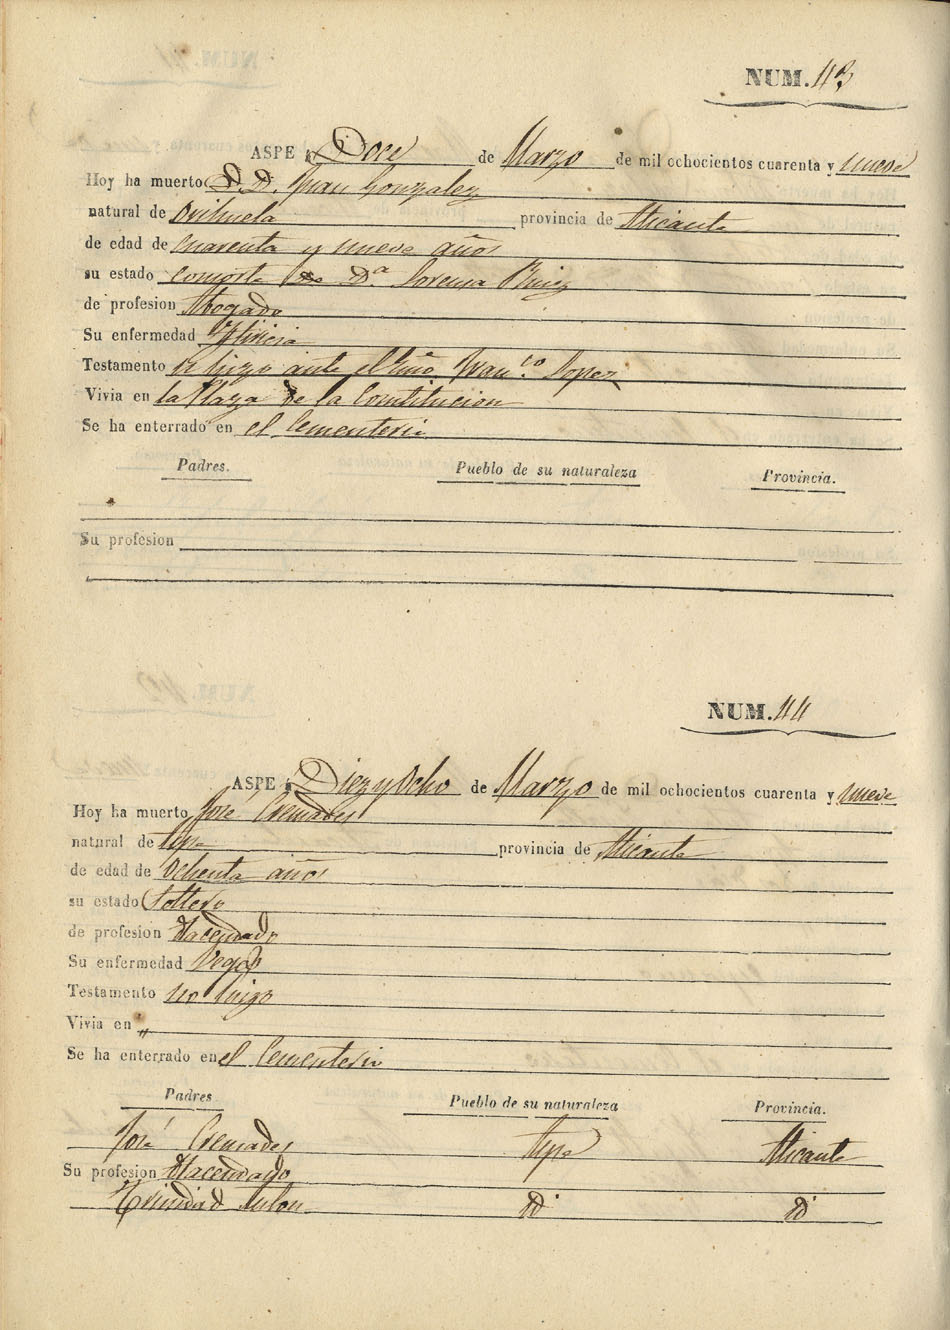 NUM. 43
ASPE á Doce de Marzo de mil ochocientos cuarenta y nueve
Hoy ha muerto D. D. Juan Gonzalez
natural de Orihuela provincia de Alicante
de edad de cuarenta y nueve años
su estado consorte de D.ª Lorensa Ruiz
de profesion Abogado
Su enfermedad
Testamento le hizo ante el Fran.co Lopez
Vivia en la Plaza de la Constitucion
Se ha enterrado en el Cementerio
Padres. Pueblo de su naturaleza Provincia.
Su profesion
NUM. 44
ASPE á Diez y Ocho de Marzo de mil ochocientos cuarenta y nueve
Hoy ha muerto José Cremades
natural de Aspe provincia de Alicante
de edad de Ochenta años
su estado Soltero
de profesion Hacendado
Su enfermedad
Testamento no hizo
Vivia en „
Se ha enterrado en el Cementerio
Padres Pueblo de su naturaleza Provincia.
José Cremades Aspe Alicante
Su profesion Hacendado
Trinidad id id